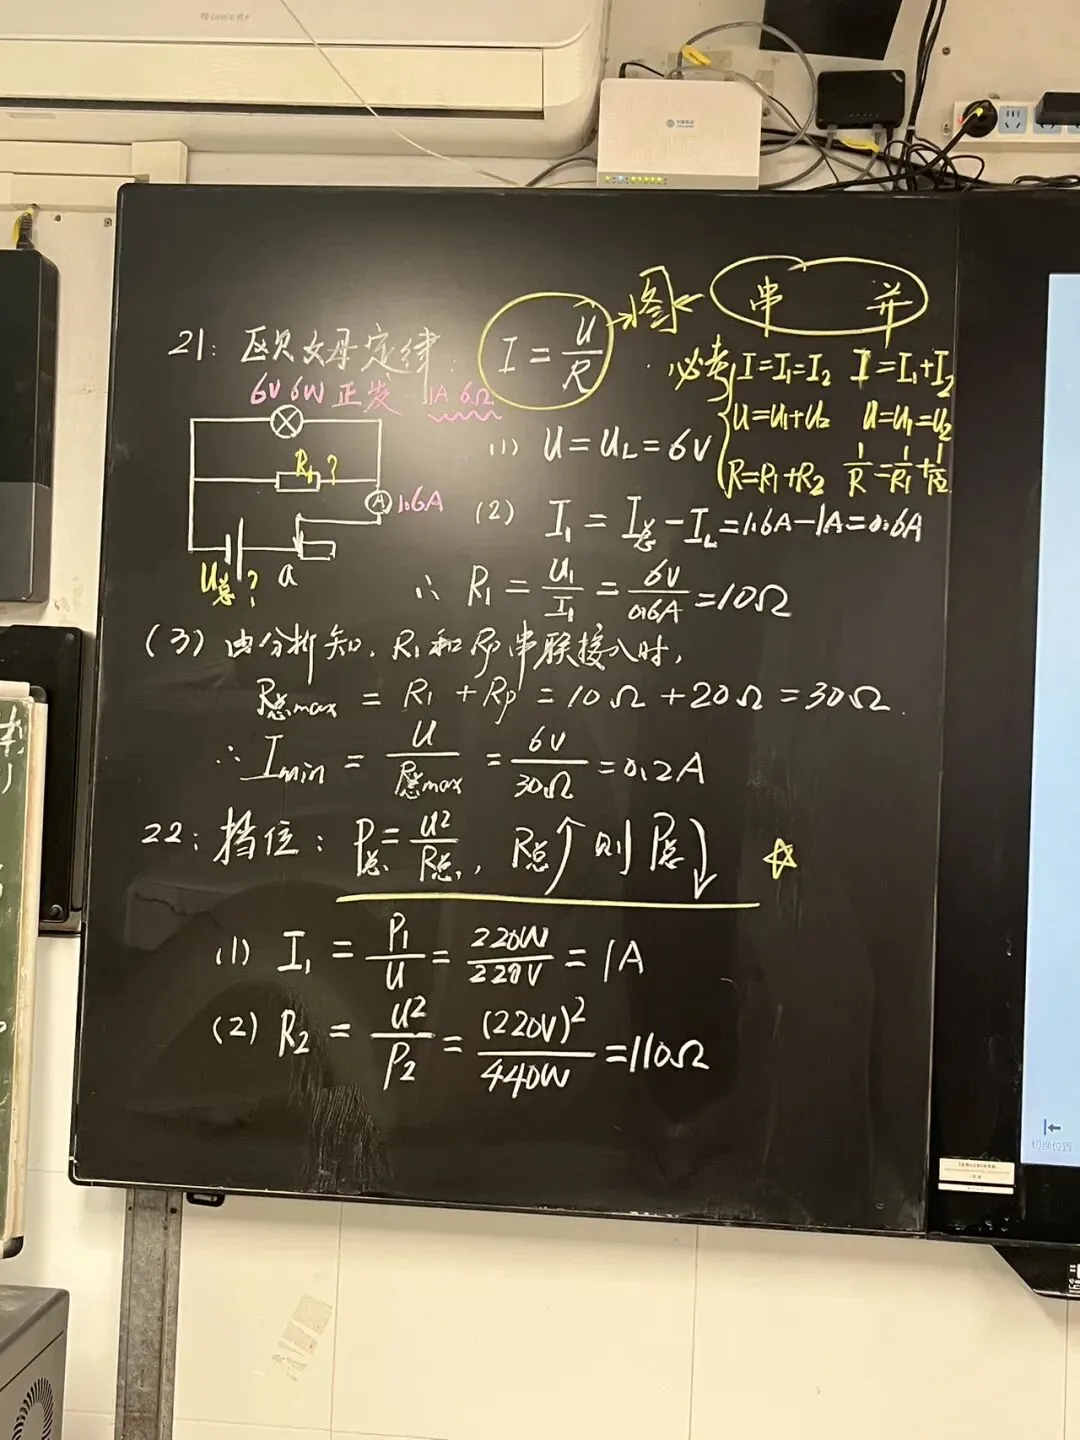 中国移动
21: 欧姆定律: I = U/R → 图 ← 串 并
必考 I=I₁=I₂ I=I₁+I₂
U=U₁+U₂ U=U₁=U₂
R=R₁+R₂ 1/R=1/R₁+1/R₂
6V 6W 正发 1A 6Ω
R₁?
A 1.6A
U总? a
(1) U=U_L=6V
(2) I₁=I总-I_L=1.6A-1A=0.6A
∴ R₁=U₁/I₁=6V/0.6A=10Ω
(3) 由分析知, R₁和Rp串联接入时,
R总max = R₁ + Rp = 10Ω + 20Ω = 30Ω.
∴ Imin = U/R总max = 6V/30Ω = 0.2A
22: 挡位: P总=U²/R总, R总↑则P总↓ ☆
(1) I₁ = P₁/U = 220W/220V = 1A
(2) R₂ = U²/P₂ = (220V)²/440W = 110Ω
切换位置